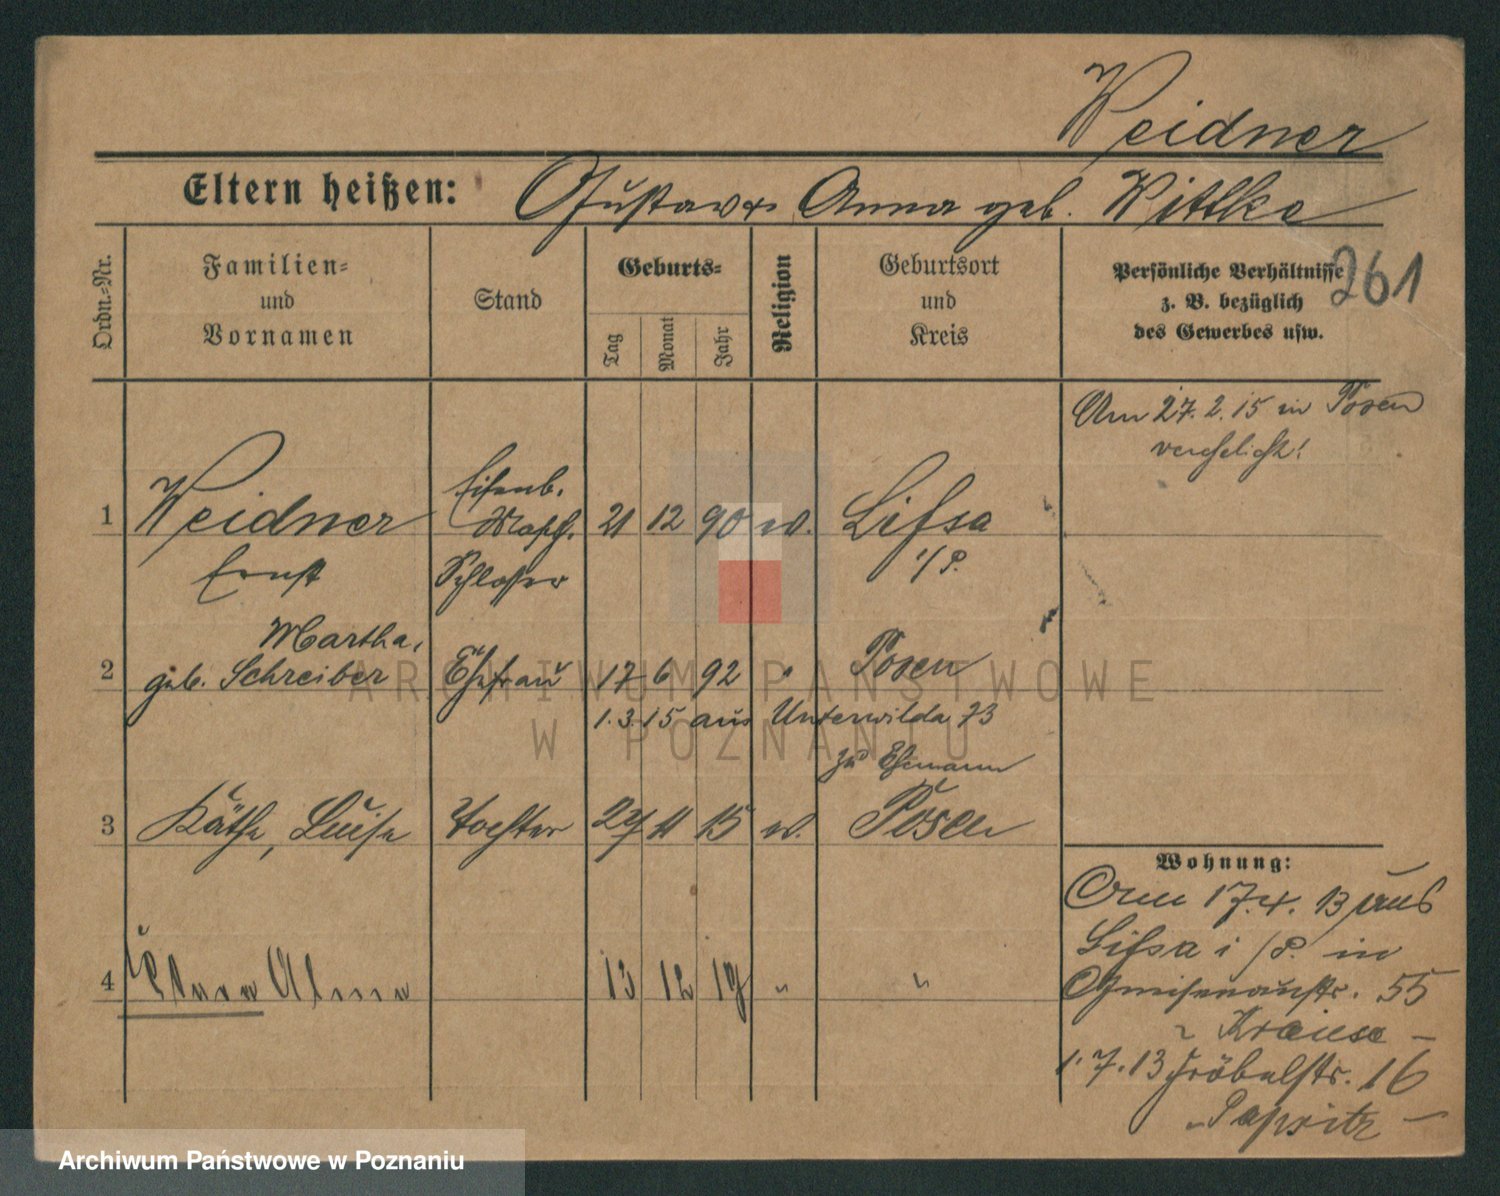 Weidner
Eltern heißen: Gustav u. Anna geb. Wittke
261
Ordn.-Nr.
Familien-
und
Vornamen
Stand
Geburts-
Tag
Monat
Jahr
Religion
Geburtsort
und
Kreis
Persönliche Verhältnisse
z. B. bezüglich
des Gewerbes usw.
Am 27.2.15 in Posen
verehelicht!
Eisenb.
1 Weidner Masch. 21 12 90 ev. Lissa
Ernst Schlosser i/P.
Martha,
2 geb. Schreiber Ehefrau 17 6 92 " Posen
1.3.15 aus Unterwilda 73
zu Ehemann
3 Käthe, Luise Tochter 27 11 15 ev. Posen
Wohnung:
Am 17.4.13 aus
Lissa i/P. in
Gneisenaustr. 55
Krause -
1.7.13 Fröbelstr. 16
4 Alma 13 12 19 " "
ARCHIWUM PAŃSTWOWE
W POZNANIU
Archiwum Państwowe w Poznaniu